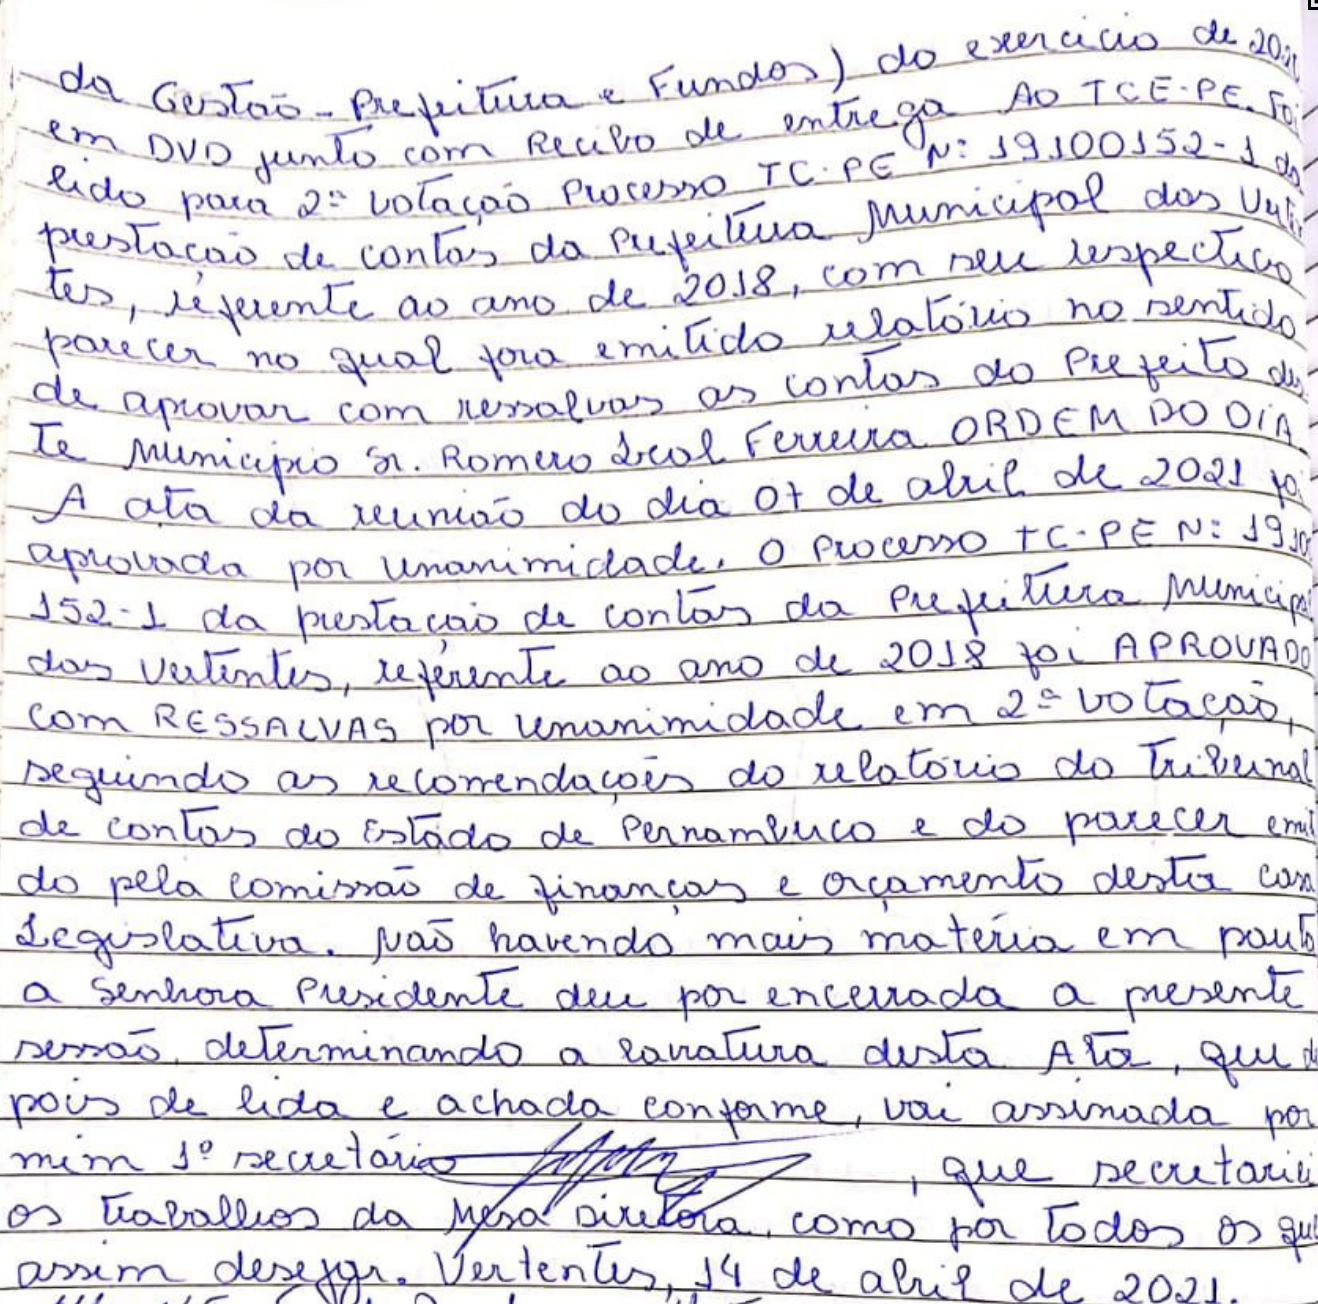 da Gestão - Prefeitura e Fundos) do exercício de 202
em DVD junto com Recibo de entrega AO TCE-PE. Foi
lido para 2ª votação Processo TC-PE Nº 19100152-1 da
prestação de contas da Prefeitura Municipal das Verten
tes, referente ao ano de 2018, com seu respectivo
parecer no qual fora emitido relatório no sentido
de aprovar com ressalvas as contas do Prefeito des
te Município Sr. Romero Leal Ferreira ORDEM DO DIA
A ata da reunião do dia 07 de abril de 2021 foi
aprovada por unanimidade. O Processo TC-PE N: 19100
152-1 da prestação de contas da Prefeitura Municipal
das Vertentes, referente ao ano de 2018 foi APROVADO
com RESSALVAS por unanimidade em 2ª votação,
seguindo as recomendações do relatório do Tribunal
de contas do Estado de Pernambuco e do parecer emiti
do pela comissão de finanças e orçamento desta casa
Legislativa. Não havendo mais matéria em pauta
a Senhora Presidente deu por encerrada a presente
sessão, determinando a lavratura desta Ata, que de
pois de lida e achada conforme, vai assinada por
mim 1º secretário , que secretariei
os trabalhos da Mesa Diretora, como por todos os que
assim desejar. Vertentes, 14 de abril de 2021.